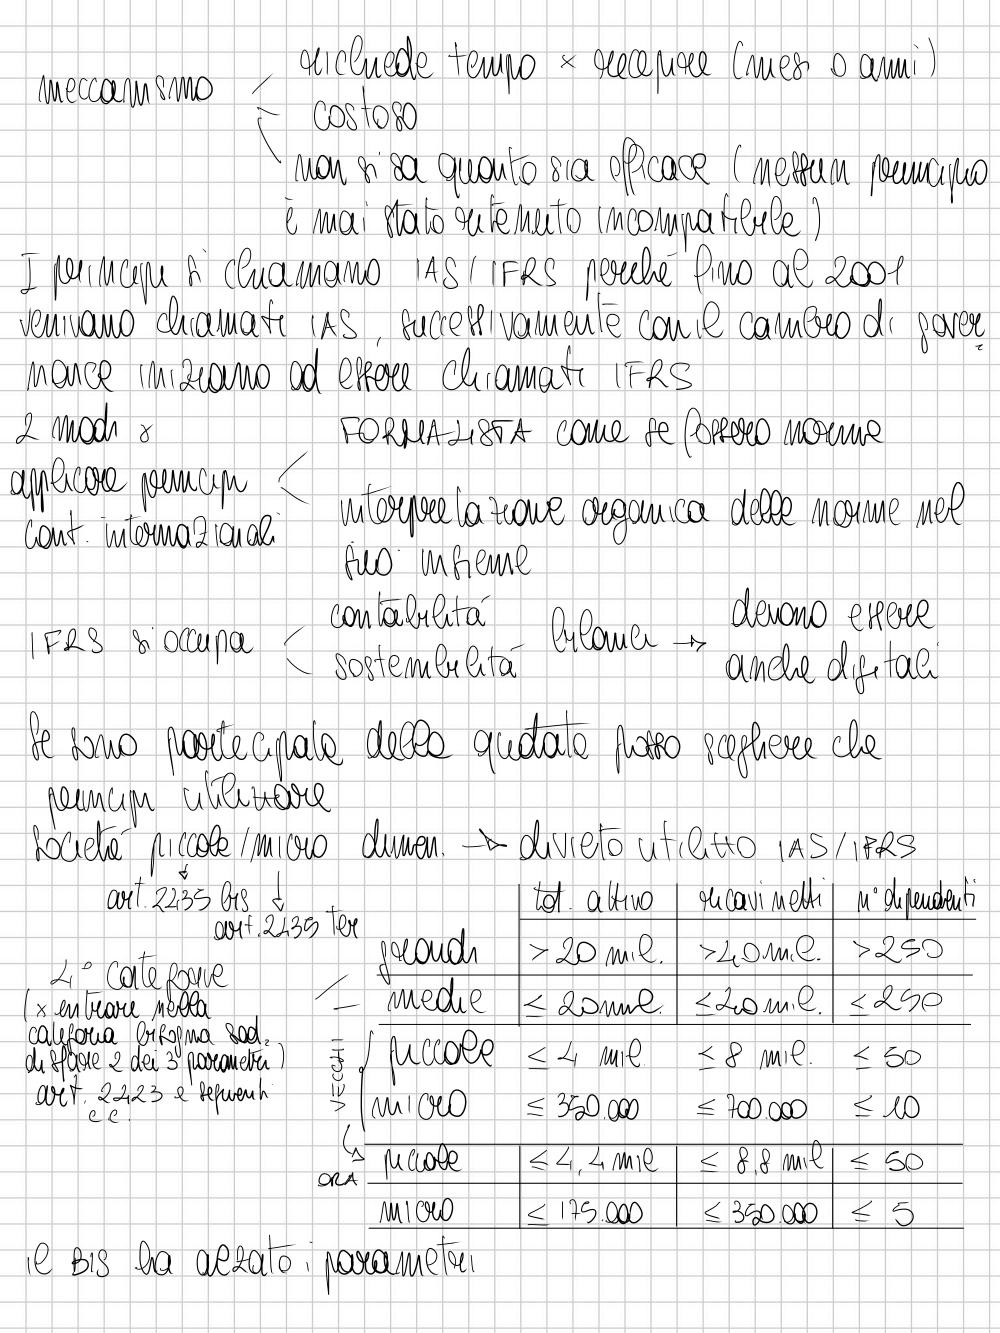 meccanismo
richiede tempo x recepire (mesi o anni)
costoso
non si sa quanto sia efficace (nessun principio
è mai stato ritenuto incompatibile)
I principi si chiamano IAS/IFRS perché fino al 2001
venivano chiamati IAS, successivamente con il cambio di gover
nance iniziano ad essere chiamati IFRS
2 modi x
applicare principi
cont. internazionali
FORMALISTA come se fossero norme
interpretazione organica delle norme nel
suo insieme
IFRS si occupa
contabilità
sostenibilità
bilanci → devono essere
anche digitali
Se sono partecipata della quotata posso scegliere che
principi utilizzare
Società piccole/micro dimen. → divieto utilizzo IAS/IFRS
art. 2435 bis
art. 2435 ter
tot. attivo ricavi netti n° dipendenti
grandi > 20 mil. > 40 mil. > 250
medie ≤ 20 mil. ≤ 40 mil. ≤ 250
piccole ≤ 4 mil ≤ 8 mil. ≤ 50
micro ≤ 350.000 ≤ 700.000 ≤ 10
VECCHI
ORA
piccole ≤ 4,4 mil ≤ 8,8 mil ≤ 50
micro ≤ 175.000 ≤ 350.000 ≤ 5
4° categorie
(x entrare nella
categoria bisogna sod.
disfare 2 dei 3 parametri)
art. 2423 e seguenti
c.c.
il BIS ha alzato i parametri